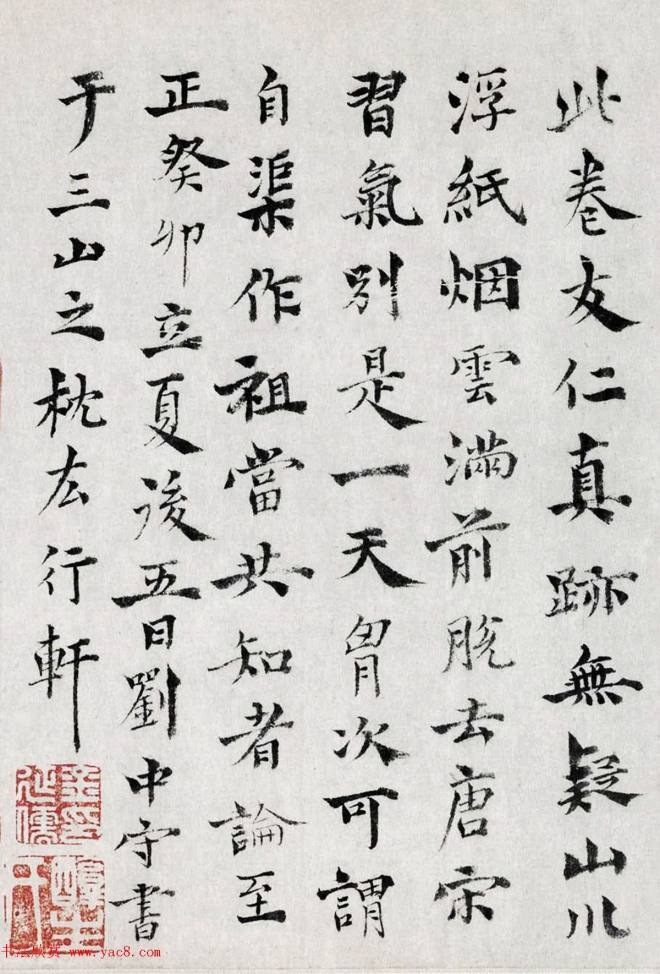 此卷友仁真跡無疑山川
浮紙烟雲滿前脫去唐宋
習氣別是一天胷次可謂
自渠作祖當共知者論至
正癸卯立夏後五日劉中守書
于三山之枕左行軒
书法欣赏 www.yac8.com